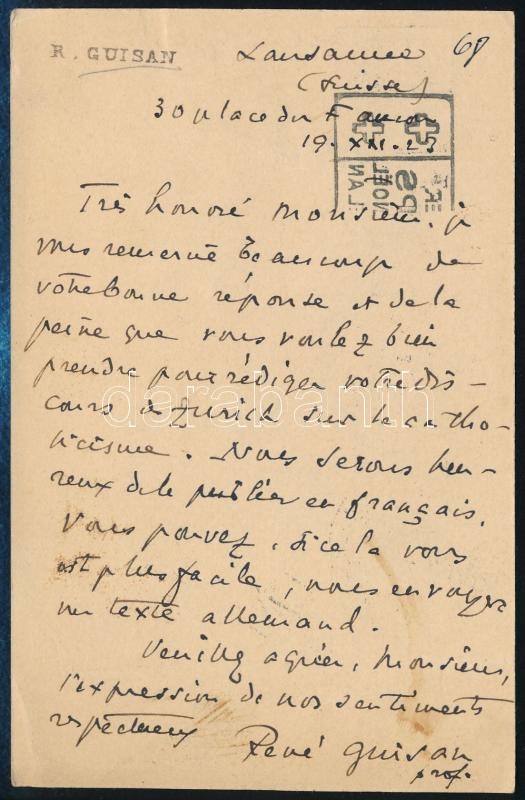 R. GUISAN
Lausanne 68
(Suisse)
30 place du Faucon
19. XII. 23
Très honoré Monsieur, je
vous remercie beaucoup de
votre bonne réponse et de la
peine que vous voulez bien
prendre pour rédiger votre dis-
cours à Zurich sur le catho-
licisme. Nous serons heu-
reux de le publier en français.
Vous pouvez, si cela vous
est plus facile, nous envoyer
un texte allemand.
Veuillez agréer, Monsieur,
l'expression de nos sentiments
respectueux René Guisan
prof.
darabanth